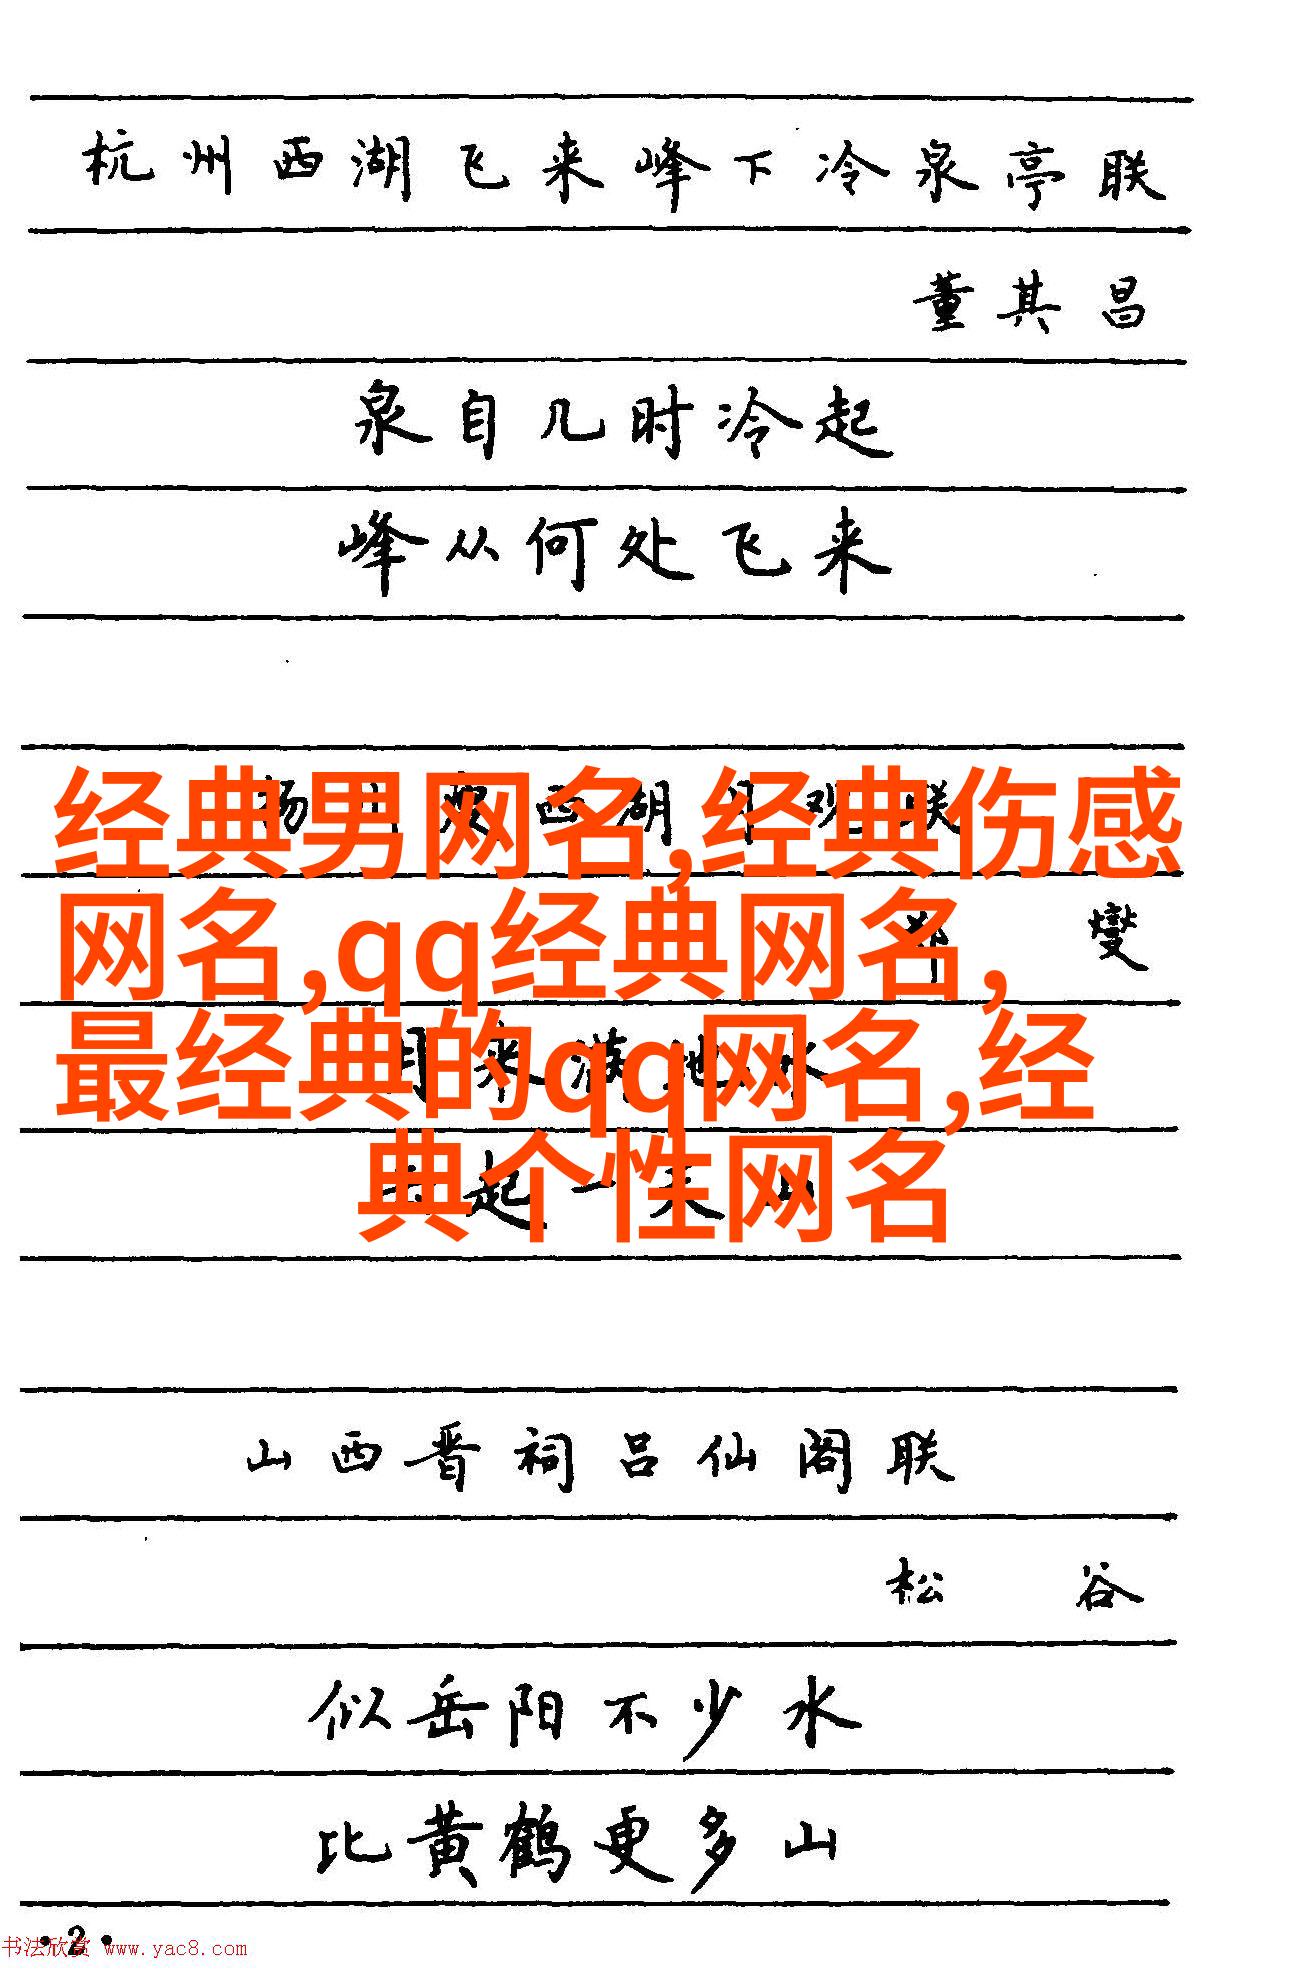 杭州西湖飞来峰下冷泉亭联
董其昌
泉自几时冷起
峰从何处飞来
西湖月观联
经典男网名,经典伤感
郑燮
网名,qq经典网名,
月来满地水
最经典的qq网名,经
起一天山
典个性网名
山西晋祠吕仙阁联
松谷
似岳阳不少水
比黄鹤更多山
·2·
书法欣赏 www.yac8.com